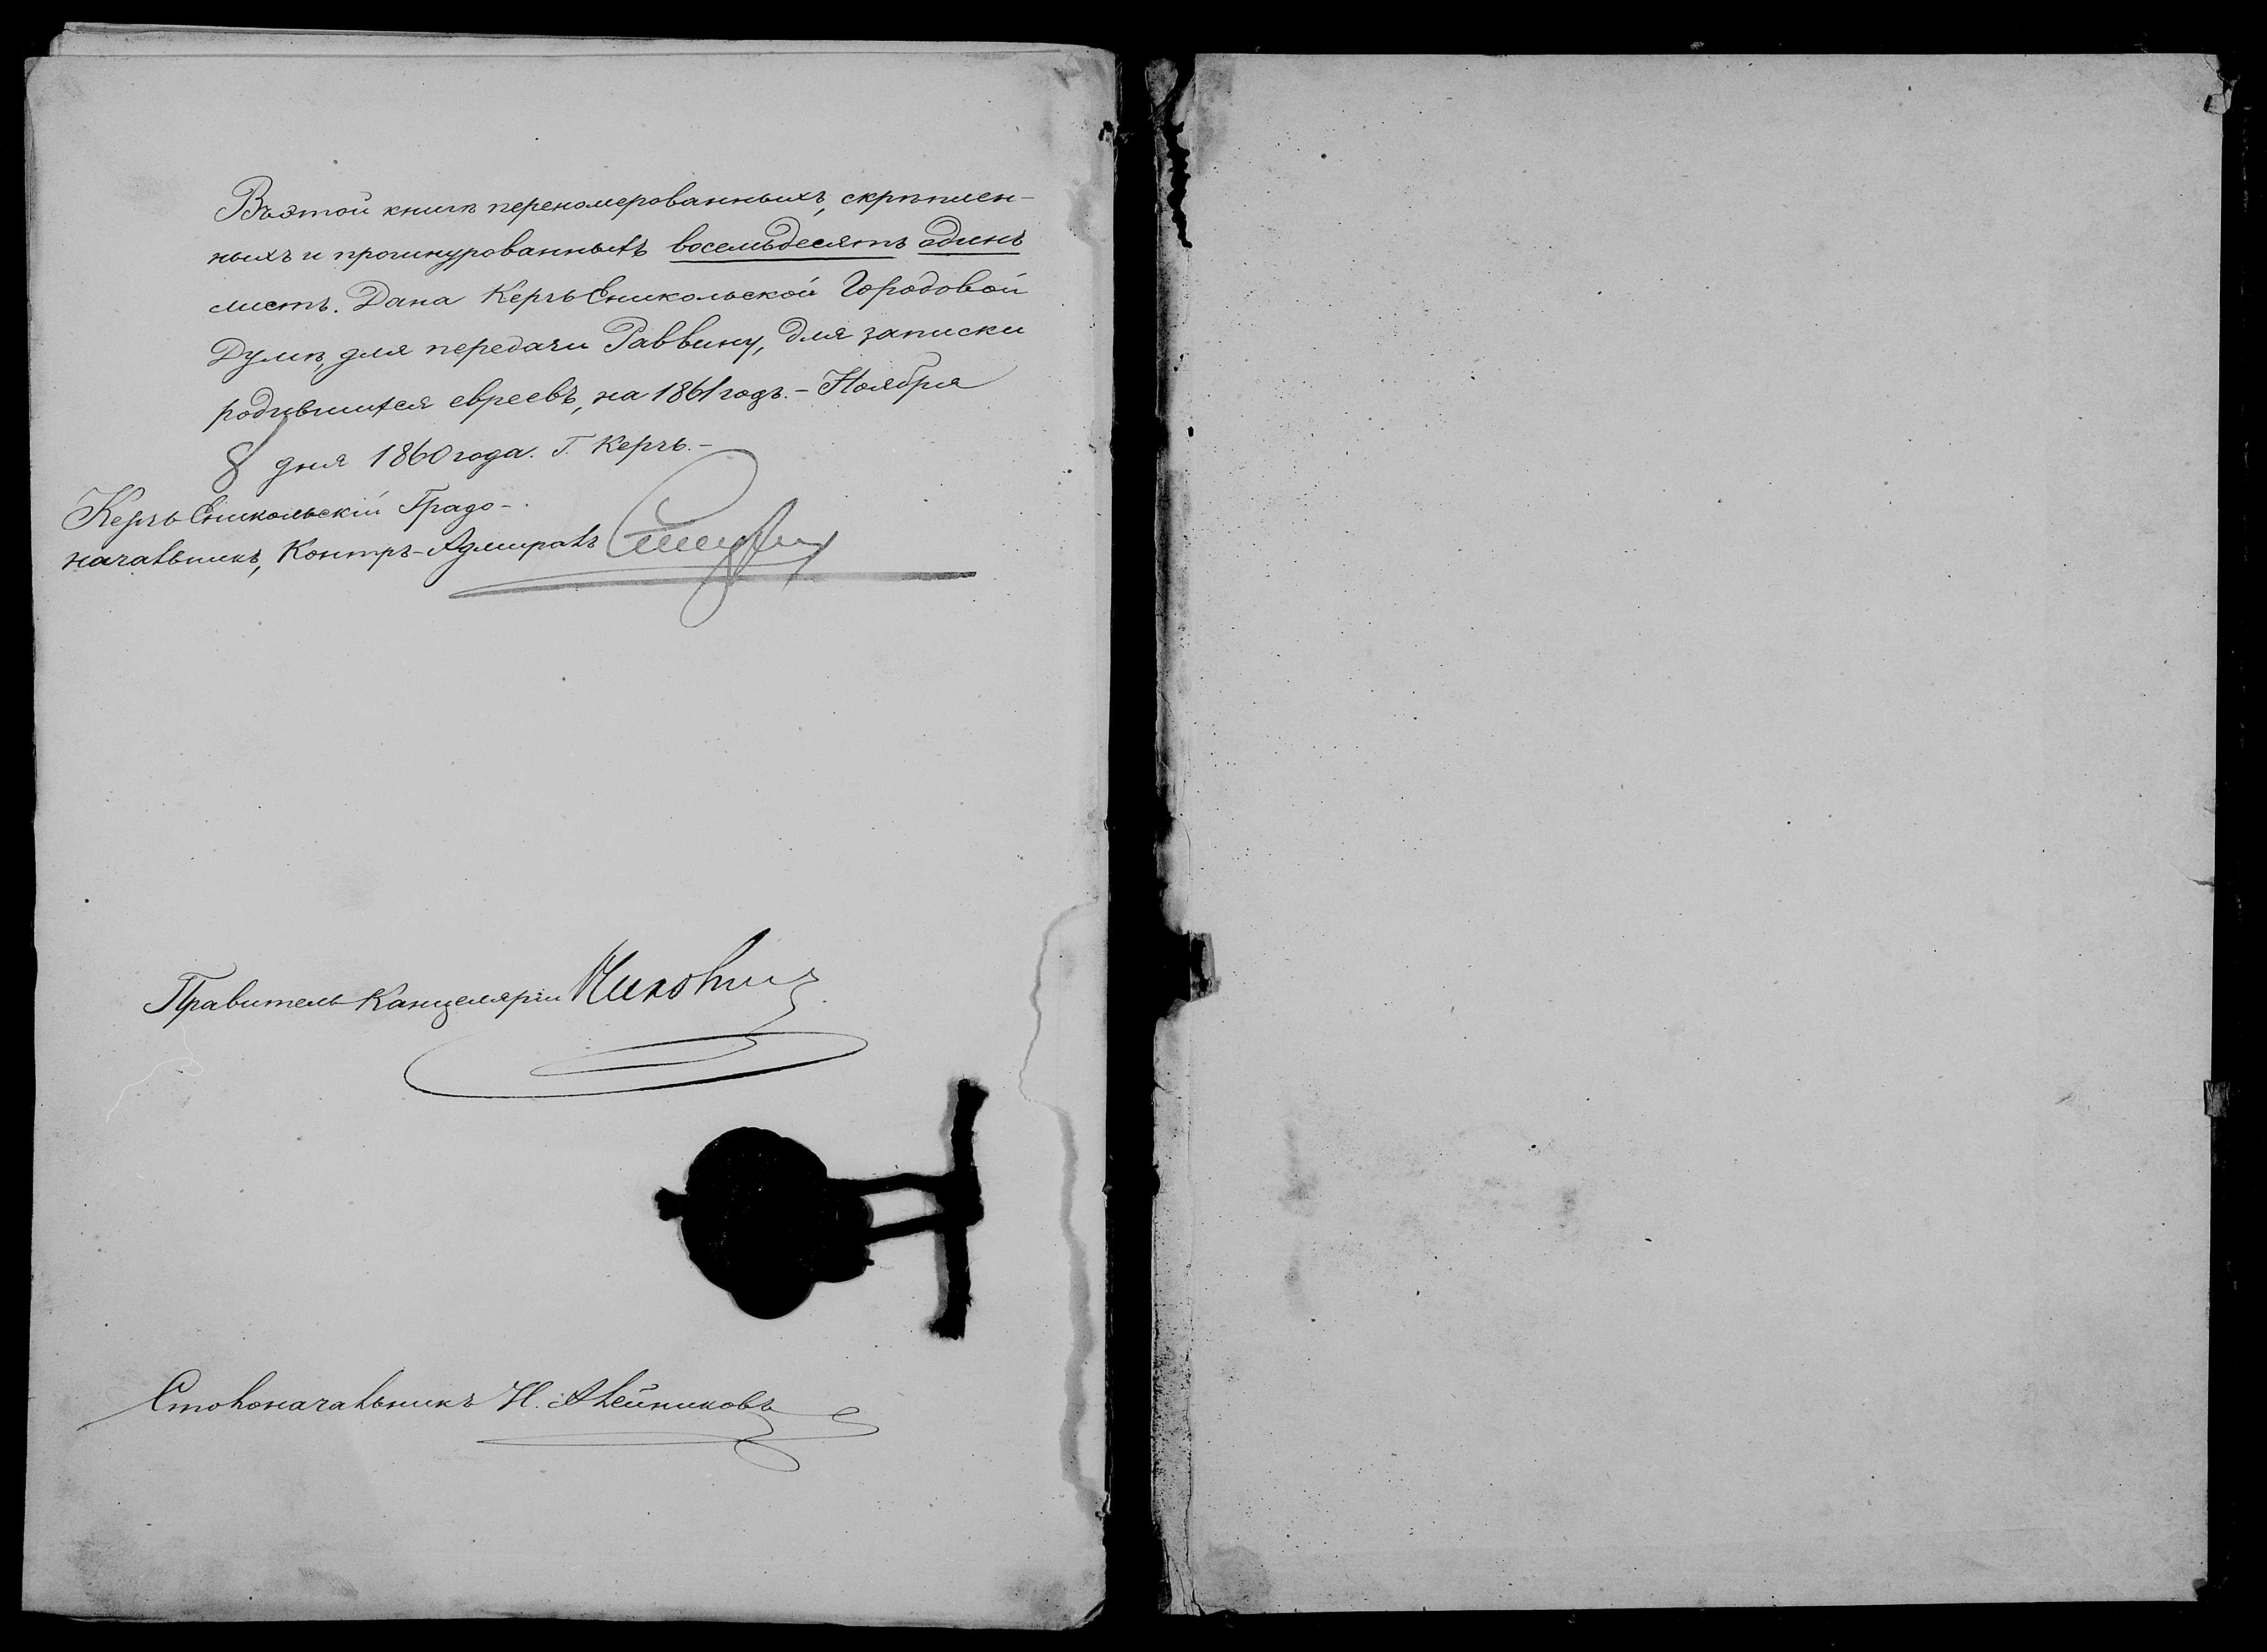 Въ этой книгѣ перенумерованныхъ, скрѣплен-
ныхъ и прошнурованныхъ восемьдесятъ одинъ
листъ. Дана Керчь Еникольской Городовой
Думѣ, для передачи Раввину, для записки
родившихся евреевъ, на 1861 годъ. – Ноября
8 дня 1860 года. Г. Керчь. –
Керчь Еникольскій Градо-
начальникъ, Контръ-Адмиралъ
Правитель Канцеляріи
Столоначальникъ Н. Алейниковъ